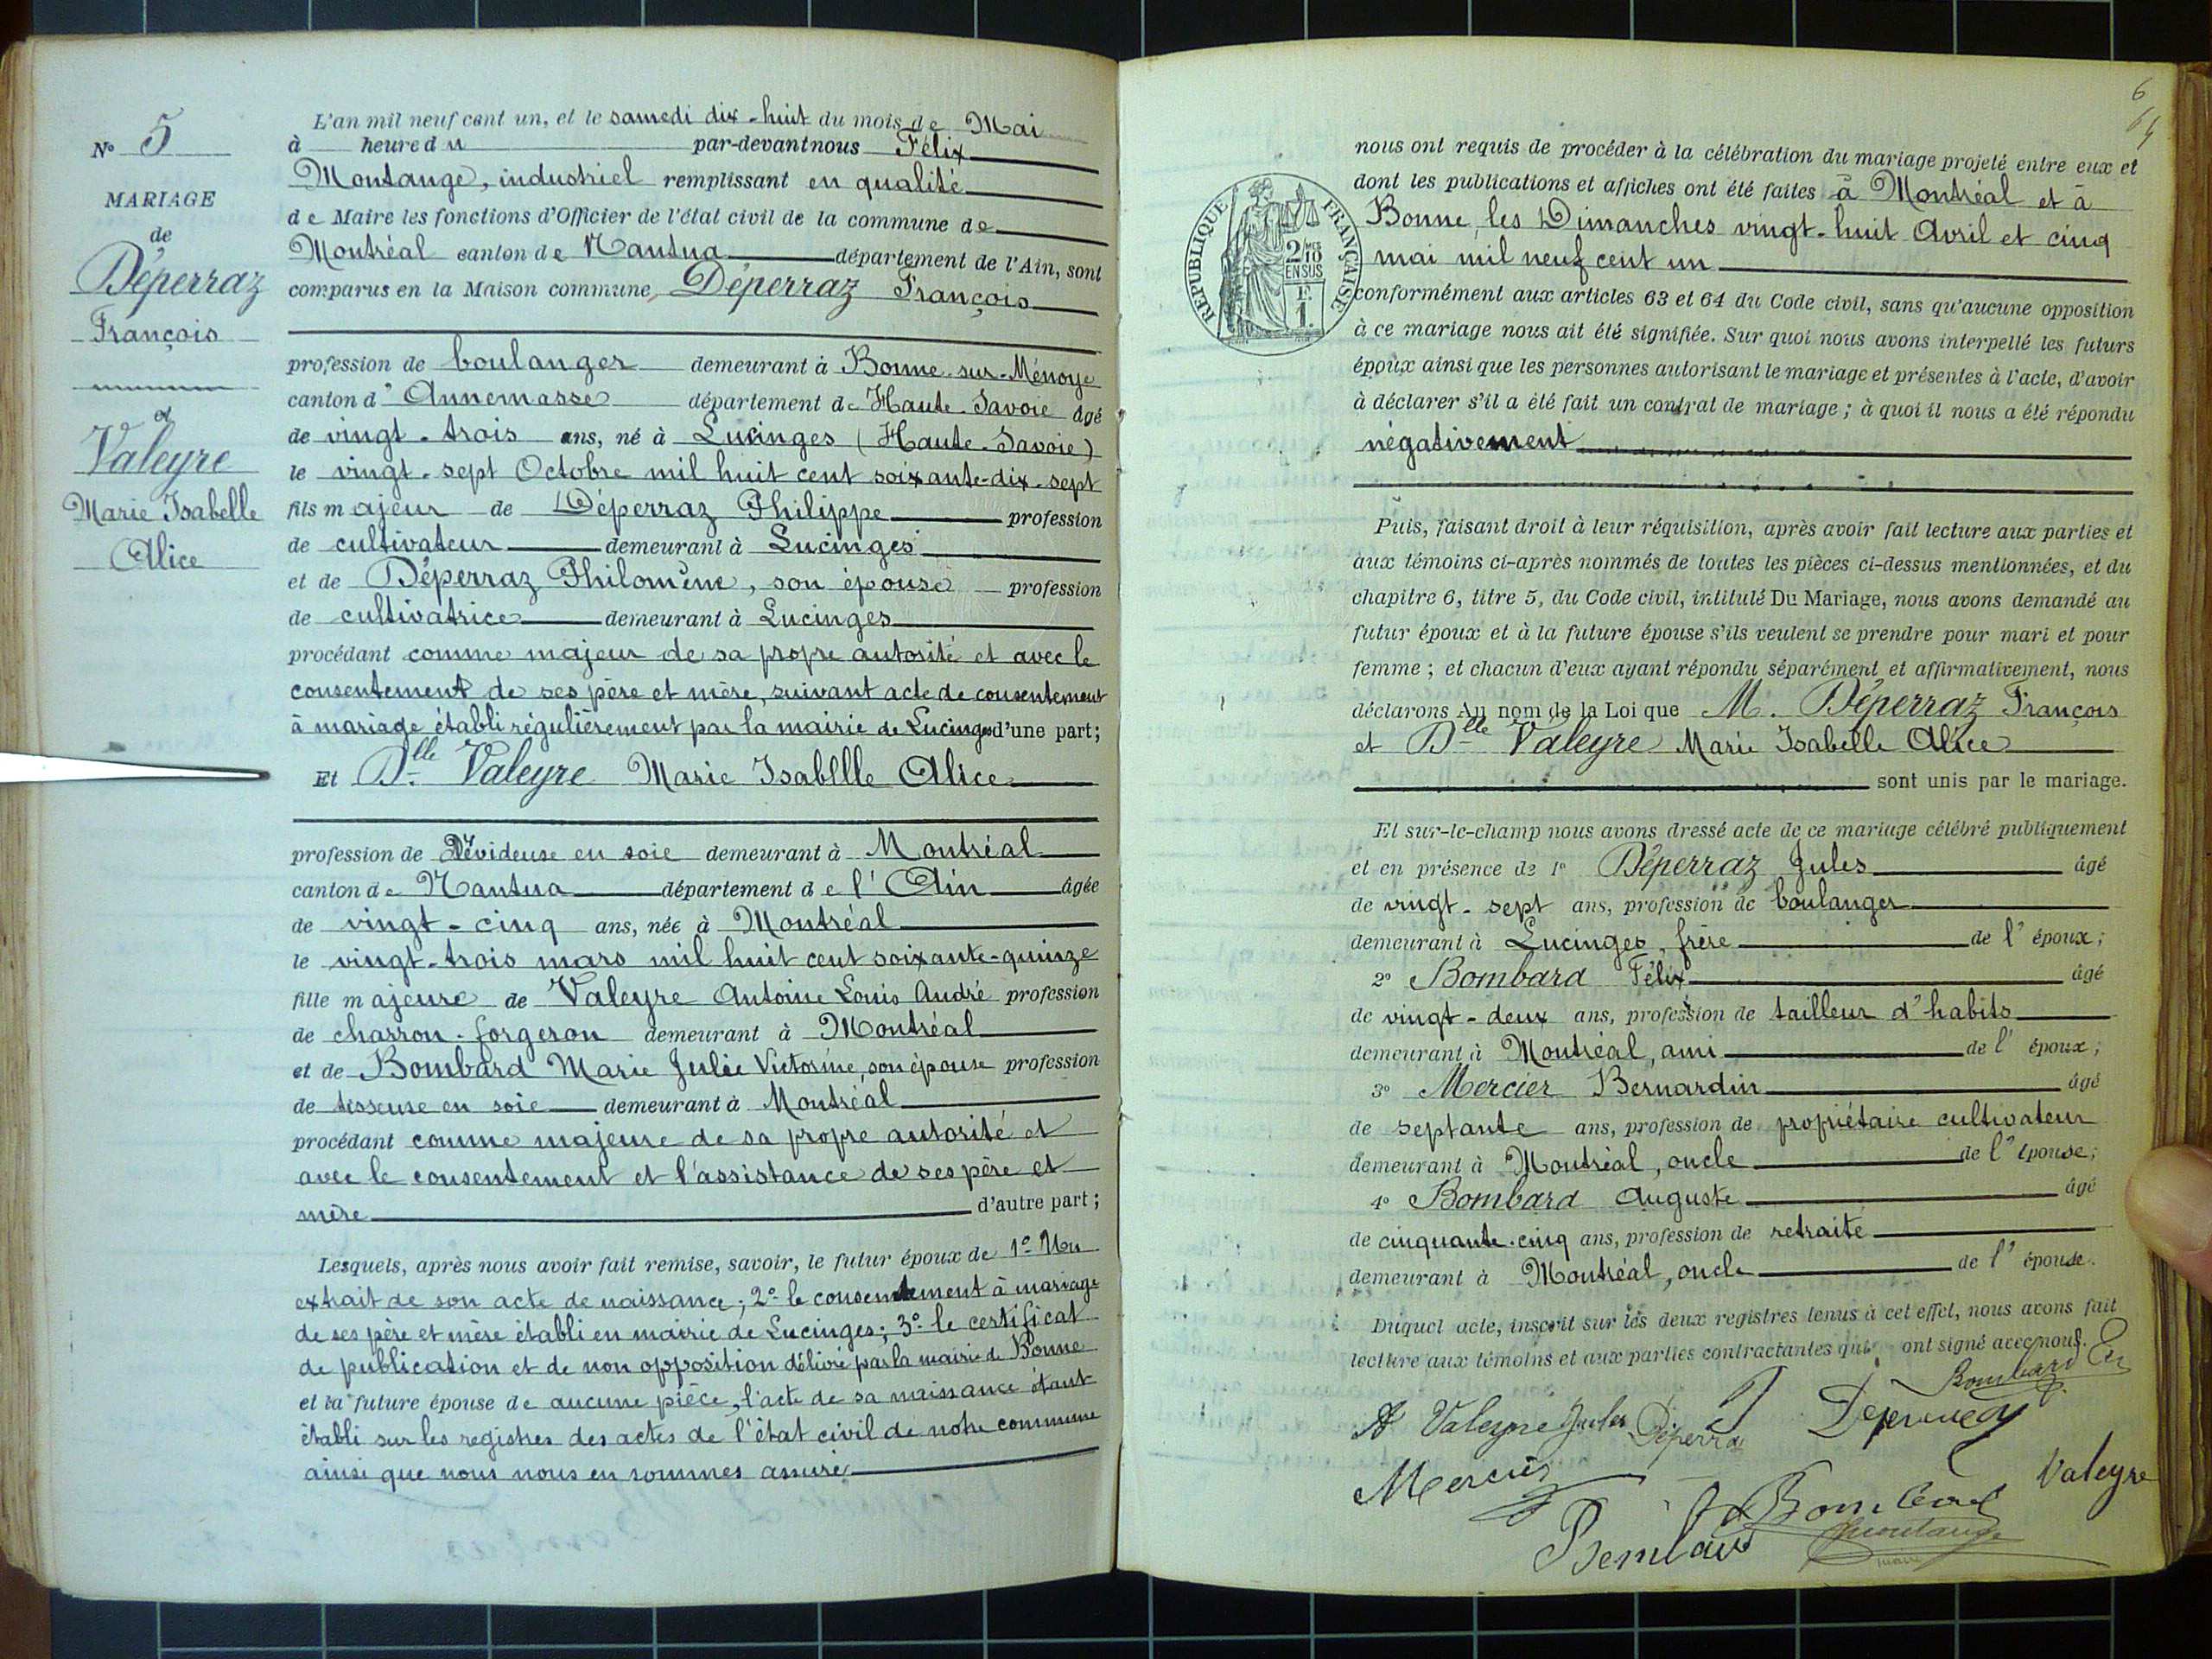 N° 5
MARIAGE
de
Déperraz
François
et
Valeyre
Marie Isabelle
Alice
L'an mil neuf cent un, et le samedi dix-huit du mois de Mai
à heure du par-devant nous Félix
Montange, industriel remplissant en qualité
de Maire les fonctions d'Officier de l'état civil de la commune de
Montréal canton de Nantua département de l'Ain, sont
comparus en la Maison commune, Déperraz François
profession de boulanger demeurant à Bonne-sur-Ménoye
canton d'Annemasse département de Haute-Savoie âgé
de vingt-trois ans, né à Lucinges (Haute-Savoie)
le vingt-sept Octobre mil huit cent soixante-dix-sept
fils majeur de Déperraz Philippe profession
de cultivateur demeurant à Lucinges
et de Déperraz Philomène, son épouse profession
de cultivatrice demeurant à Lucinges
procédant comme majeur de sa propre autorité et avec le
consentement de ses père et mère, suivant acte de consentement
à mariage établi régulièrement par la mairie de Lucinges d'une part;
Et Dlle Valeyre Marie Isabllle Alice
profession de Dévideuse en soie demeurant à Montréal
canton de Nantua département de l'Ain âgée
de vingt-cinq ans, née à Montréal
le vingt-trois mars mil huit cent soixante-quinze
fille majeure de Valeyre Antoine Louis André profession
de charron-forgeron demeurant à Montréal
et de Bombard Marie Julie Victorine, son épouse profession
de tisseuse en soie demeurant à Montréal
procédant comme majeure de sa propre autorité et
avec le consentement et l'assistance de ses père et
mère d'autre part;
Lesquels, après nous avoir fait remise, savoir, le futur époux de 1° Un
extrait de son acte de naissance; 2° le consentement à mariage
de ses père et mère établi en mairie de Lucinges; 3° le certificat
de publication et de non opposition délivré par la mairie de Bonne
et la future épouse de aucune pièce, l'acte de sa naissance étant
établi sur les registres des actes de l'état civil de notre commune
ainsi que nous nous en sommes assuré
6
RÉPUBLIQUE FRANÇAISE
2/10
EN SUS
F.
1.
nous ont requis de procéder à la célébration du mariage projeté entre eux et
dont les publications et affiches ont été faites à Montréal et à
Bonne, les Dimanches vingt-huit Avril et cinq
mai mil neuf cent un
conformément aux articles 63 et 64 du Code civil, sans qu'aucune opposition
à ce mariage nous ait été signifiée. Sur quoi nous avons interpellé les futurs
époux ainsi que les personnes autorisant le mariage et présentes à l'acte, d'avoir
à déclarer s'il a été fait un contrat de mariage; à quoi il nous a été répondu
négativement
Puis, faisant droit à leur réquisition, après avoir fait lecture aux parties et
aux témoins ci-après nommés de toutes les pièces ci-dessus mentionnées, et du
chapitre 6, titre 5, du Code civil, intitulé Du Mariage, nous avons demandé au
futur époux et à la future épouse s'ils veulent se prendre pour mari et pour
femme; et chacun d'eux ayant répondu séparément et affirmativement, nous
déclarons Au nom de la Loi que M. Déperraz François
et Dlle Valeyre Marie Isabelle Alice
sont unis par le mariage.
Et sur-le-champ nous avons dressé acte de ce mariage célébré publiquement
et en présence de 1° Déperraz Jules âgé
de vingt-sept ans, profession de boulanger
demeurant à Lucinges, frère de l'époux;
2° Bombard Félix âgé
de vingt-deux ans, profession de tailleur d'habits
demeurant à Montréal, ami de l'époux;
3° Mercier Bernardin âgé
de septante ans, profession de propriétaire cultivateur
demeurant à Montréal, oncle de l'épouse;
4° Bombard Auguste âgé
de cinquante-cinq ans, profession de retraité
demeurant à Montréal, oncle de l'épouse.
Duquel acte, inscrit sur les deux registres tenus à cet effet, nous avons fait
lecture aux témoins et aux parties contractantes qui ont signé avec nous.
Bombard
A Valeyre Jules Déperraz
Mercier
Valeyre
Bombard
Montange
maire